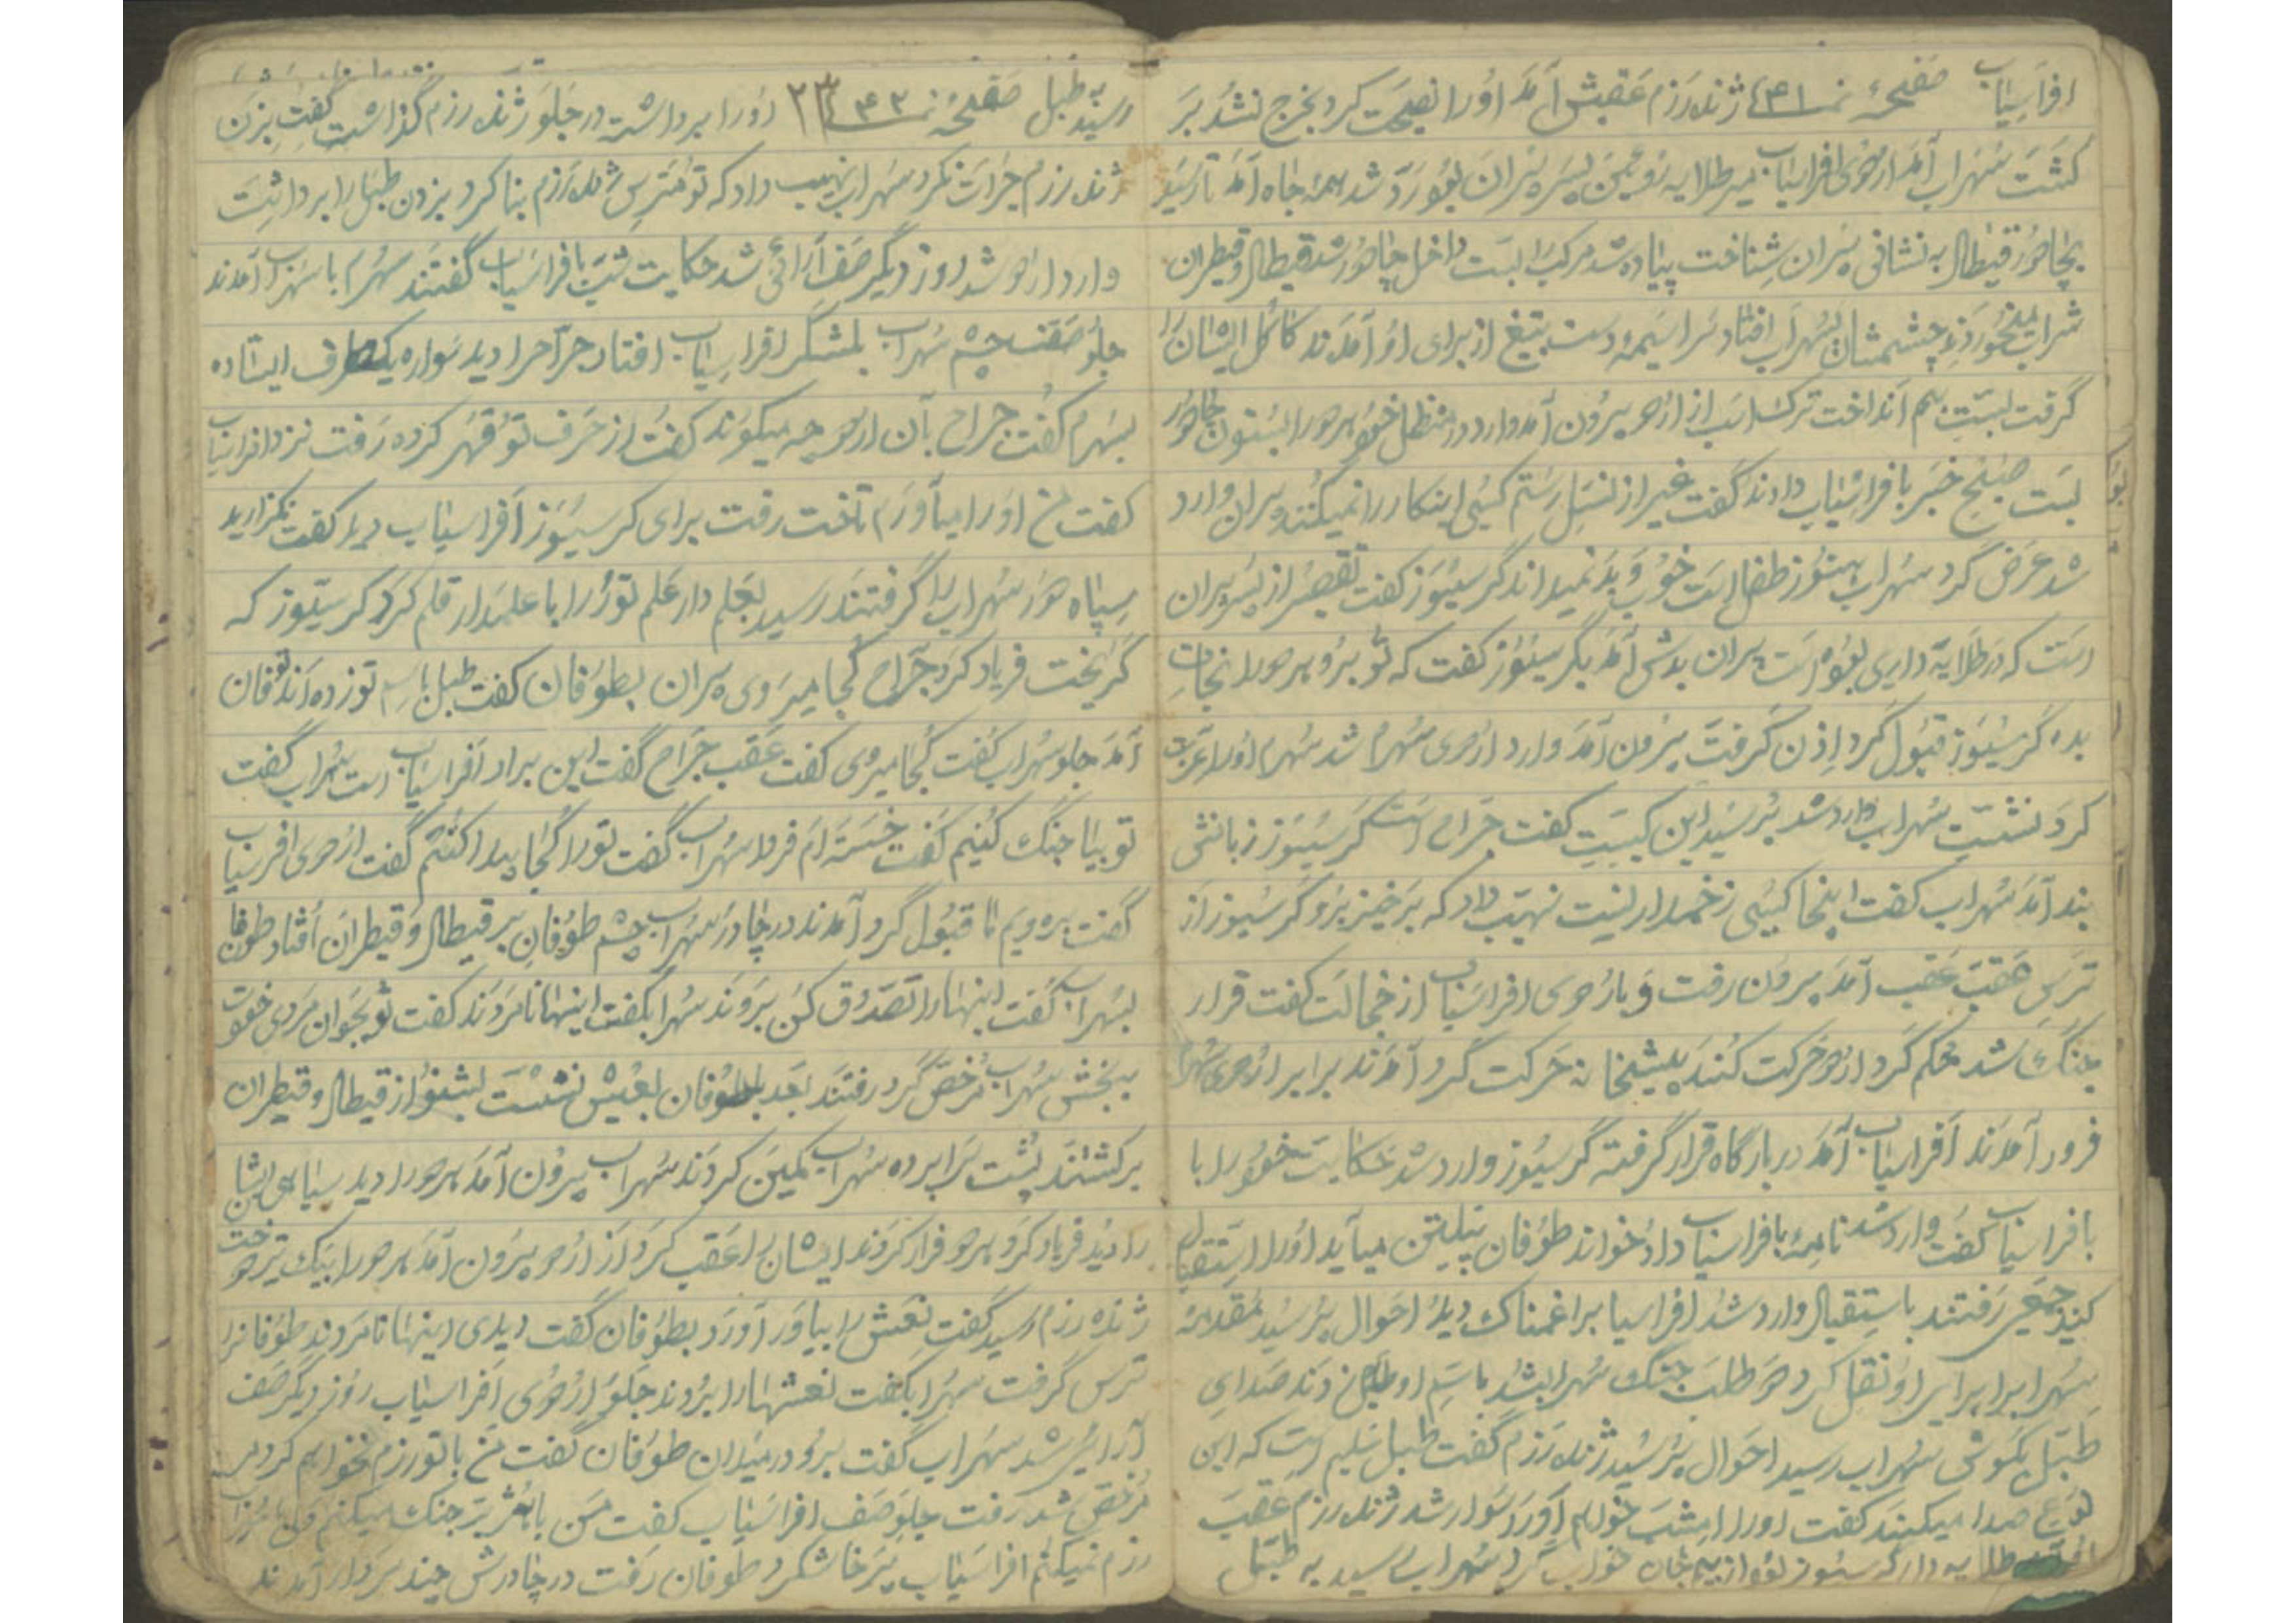 افراسیاب صفحهٔ نمـ۴۱ـ ژنده رزم عقبش آمد اورا نصیحت کرد بخرج نشد بر
گشت سهراب آمد اردوی افراسیاب میر طلایه روئین پسر پیران بود رد شد همه جاه آمد تا رسید
بچادر قیطال به نشانی پیران شناخت پیاده شد مرکب را بست داخل چادر شد قیطال و قیطران
شراب میخوردند چشمشان بسهراب افتاد سراسیمه دست بتیغ از برای او آمدند کاکل ایشان را
گرفت بست بهم انداخت ترک اسب از اردو بیرون آمد وارد در منظل خود هر دو را بستون چادر
بست صبح خبر بافراسیاب دادند گفت غیر از نسل رستم کسی اینکار را نمیکند پیران وارد
شد عرض کرد سهراب هنوز طفل است خوب و بد نمیداند گرسیوز گفت تقصیر از پسر پیران
است که در طلایه داری بوده است پیران بدش آمد بگرسیوز گفت که تو برو هر دو را نجات
بده گرسیوز قبول کرد اذن گرفت بیرون آمد وارد اردوی سهرم شد سهرم اورا عزت
کرد نشست سهراب وارد شد پرسید این کیست گفت جراح است گرسیوز زبانش
بند آمد سهراب گفت اینجا کسی زخمدار نیست نهیب داد که برخیز برو گرسیوز از
ترس عقب عقب آمد بیرون رفت و باردوی افراسیاب از خجالت گفت قرار
جنگ شد محکم کرد اردو حرکت کنند پیشخانه حرکت کرد آمدند برابر اردوی سهراب
فرود آمدند افراسیاب آمد در بارگاه قرار گرفته گرسیوز وارد شد حکایت خود را با
بافراسیاب گفت وارد شد نامه بافراسیاب داد خواند طوفان پیلتن میآید اورا استقبال
کنید جمعی رفتند باستقبال وارد شد افراسیاب را غمناک دید احوال پرسید مقدمه
سهراب را برای او نقل کرد طلب جنگ سهراب شد باسم او طبل زدند صدای
طبل بگوش سهراب رسید احوال پرسید ژنده رزم گفت طبل سلیم است که این
نوع صدا میکند گفت اورا امشب خواهم آورد سوار شد ژنده رزم عقب
طلایه دار گرسیوز بود از بیم جان خواب کرد سهراب رسید به طبل
رسید به طبل صفحه نمـ۴۲ـ اورا برداشته در جلو ژنده رزم گذاشت گفت بزن
ژنده رزم جرات نکرد سهراب نهیب داد که تو مترس ژنده رزم بنا کرد بزدن طبل را برداشت
وارد اردو شد روز دیگر صف آرائی شد حکایت شب بافراسیاب گفتند سهرم با سهراب آمدند
جلو صف چشم سهراب بلشگر افراسیاب افتاد جراح را دید سواره یکطرف ایستاده
بسهرم گفت جراح بآن اردو چه میکند گفت از حرف تو قهر کرده رفت نزد افراسیاب
گفت من اورا میآورم تاخت رفت برای گرسیوز افراسیاب دید گفت نگزارید
سپاه دور سهراب را گرفتند رسید بعلم دار علم تور را با علمدار قلم کرد گرسیوز که
گریخت فریاد کرد جراح کجا میروی پیران بطوفان گفت طبل باسم تو زده اند طوفان
آمد جلو سهراب گفت کجا میروی گفت عقب جراح گفت این برادر افراسیاب است سهراب گفت
تو بیا جنگ کنیم گفت خسته ام فردا سهراب گفت تورا کجا پیدا کنم گفت اردوی افراسیاب
گفت برویم آنجا قبول کرد آمدند در چادر سهراب چشم طوفان بر قیطال و قیطران افتاد طوفان
بسهراب گفت اینهارا تصدوق کن بروند سهراب گفت اینها نامردند گفت تو بجوان مردی خود
ببخش سهراب مرخص کرد رفتند بعد با طوفان بعیش نشست بشنو از قیطال و قیطران
برگشتند پشت سرا پرده سهراب کمین کردند سهراب بیرون آمد هر دو را دید سیاهی ایشان
را دید فریاد کرد هر دو فرار کردند ایشان را عقب کرد از اردو بیرون آمد هر دو را بیک تیر دوخت
ژنده رزم رسید گفت نعش را بیاور آورد بطوفان گفت دیدی اینها نامردند طوفانرا
ترس گرفت سهراب گفت نعشهارا بردند جلو اردوی افراسیاب روز دیگر صف
آرائی شد سهراب گفت برو در میدان طوفان گفت من با تو رزم نخواهم کرد
مرخص شد رفت جلو صف افراسیاب گفت من با بشر جنگ میکنم
رزم نمیکنم افراسیاب پرخاش کرد طوفان رفت در چادرش چند سردار آمدند